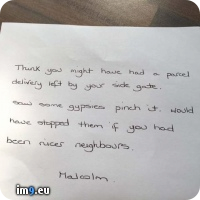 Think you might have had a parcel
delivery left by your side gate.
Saw some gypsies pinch it. Would
have stopped them if you had
been nicer neighbours.
Malcolm.
im9.eu